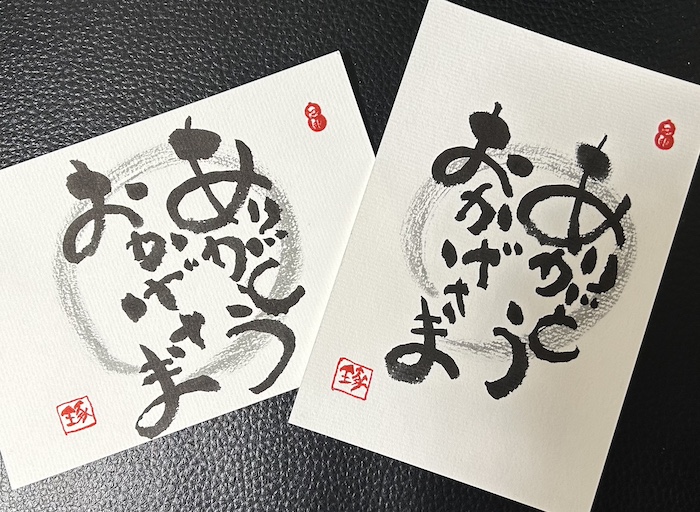 ありがとう
おかげさま
琢
ありがとう
おかげさま
琢